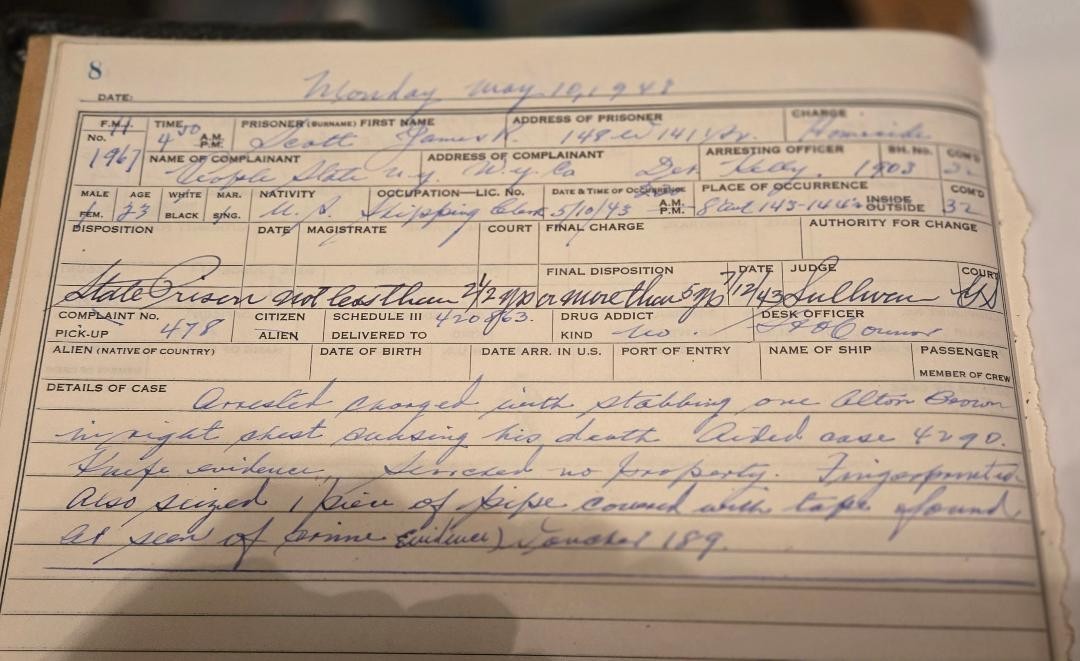 8
DATE: Monday May 10, 1943
F.M. No. TIME A.M. P.M. PRISONER (SURNAME) FIRST NAME ADDRESS OF PRISONER CHARGE
1967 4 30 Scott James R. 148 W 141 St. Homicide
NAME OF COMPLAINANT ADDRESS OF COMPLAINANT ARRESTING OFFICER SH. No. COM'D
People State N.Y. N.Y. Co Det Kelly. 1903 32
MALE FEM. AGE WHITE BLACK MAR. SING. NATIVITY OCCUPATION—LIC. No. DATE & TIME OF OCCURRENCE A.M. P.M. PLACE OF OCCURRENCE INSIDE OUTSIDE COM'D
23 U.S. Shipping Clerk 5/10/43 8 Ave 143-144 32
DISPOSITION DATE MAGISTRATE COURT FINAL CHARGE AUTHORITY FOR CHANGE
FINAL DISPOSITION DATE JUDGE COURT
State Prison not less than 2 1/2 yrs or more than 5 yrs 7/12/43 Sullivan GS
COMPLAINT No. PICK-UP 478 CITIZEN ALIEN SCHEDULE III DELIVERED TO 420863. DRUG ADDICT KIND no DESK OFFICER O'Connor
ALIEN (NATIVE OF COUNTRY) DATE OF BIRTH DATE ARR. IN U.S. PORT OF ENTRY NAME OF SHIP PASSENGER MEMBER OF CREW
DETAILS OF CASE
Arrested charged with stabbing one Alton Brown
in right chest causing his death Aided case 4290.
Knife evidence, Searched no property. Fingerprinted
Also seized 1 piece of pipe covered with tape found
at seen of crime Evidence) Voucher 189.